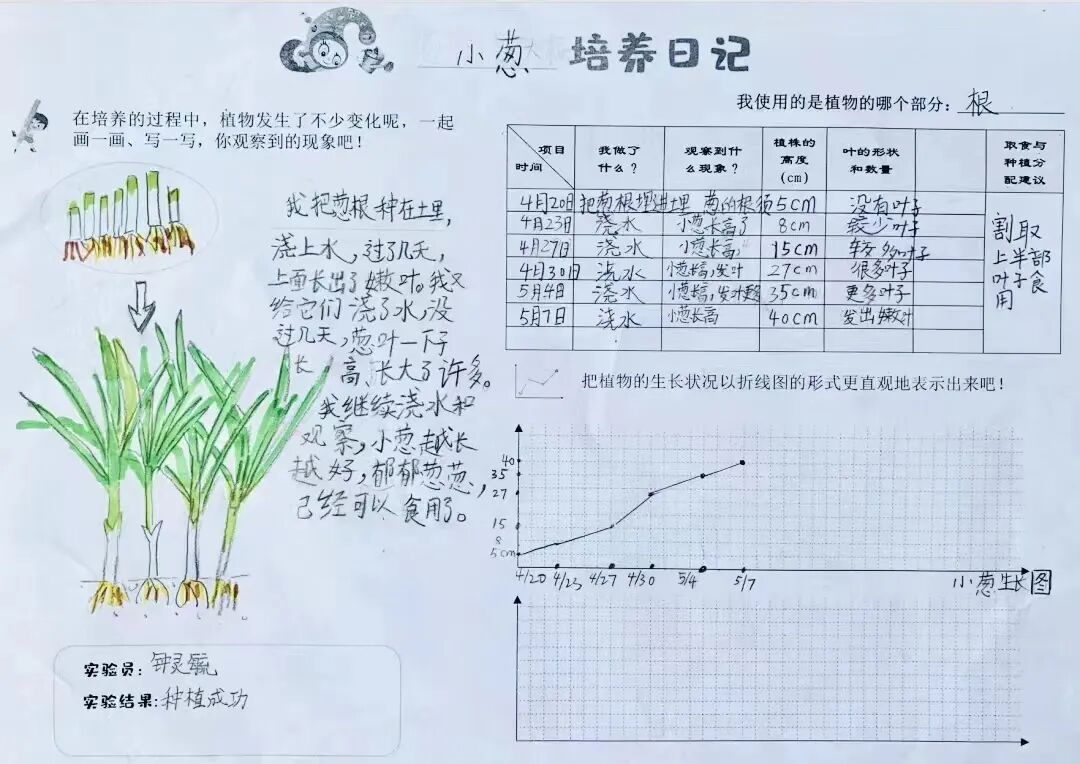 小葱 培养日记
我使用的是植物的哪个部分：根
在培养的过程中，植物发生了不少变化呢，一起
画一画、写一写，你观察到的现象吧！
我把葱根种在土里，
浇上水，过了几天，
上面长出了嫩叶。我又
给它们浇了水，没
过几天，葱叶一下子
长高、长大了许多。
我继续浇水和
观察，小葱越长
越好，郁郁葱葱，
已经可以食用了。
实验员：钟灵毓
实验结果：种植成功
项目 时间 我做了什么？ 观察到什么现象？ 植株的高度(cm) 叶的形状和数量 取食与种植分配建议
4月20日 把葱根埋进土里 葱的根须 5cm 没有叶子
4月23日 浇水 小葱长高了 8cm 较少叶子
4月27日 浇水 小葱长高 15cm 较多叶子
4月30日 浇水 小葱长高，发叶 27cm 很多叶子
5月4日 浇水 小葱长高，发叶更多 35cm 更多叶子
5月7日 浇水 小葱长高 40cm 发出嫩叶
割取
上半部
叶子食
用
把植物的生长状况以折线图的形式更直观地表示出来吧！
40
35
27
15
8
5cm
4/20 4/23 4/27 4/30 5/4 5/7
小葱生长图